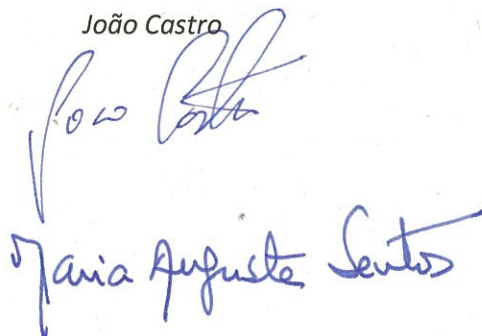 João Castro
João Castro
Maria Augusta Santos